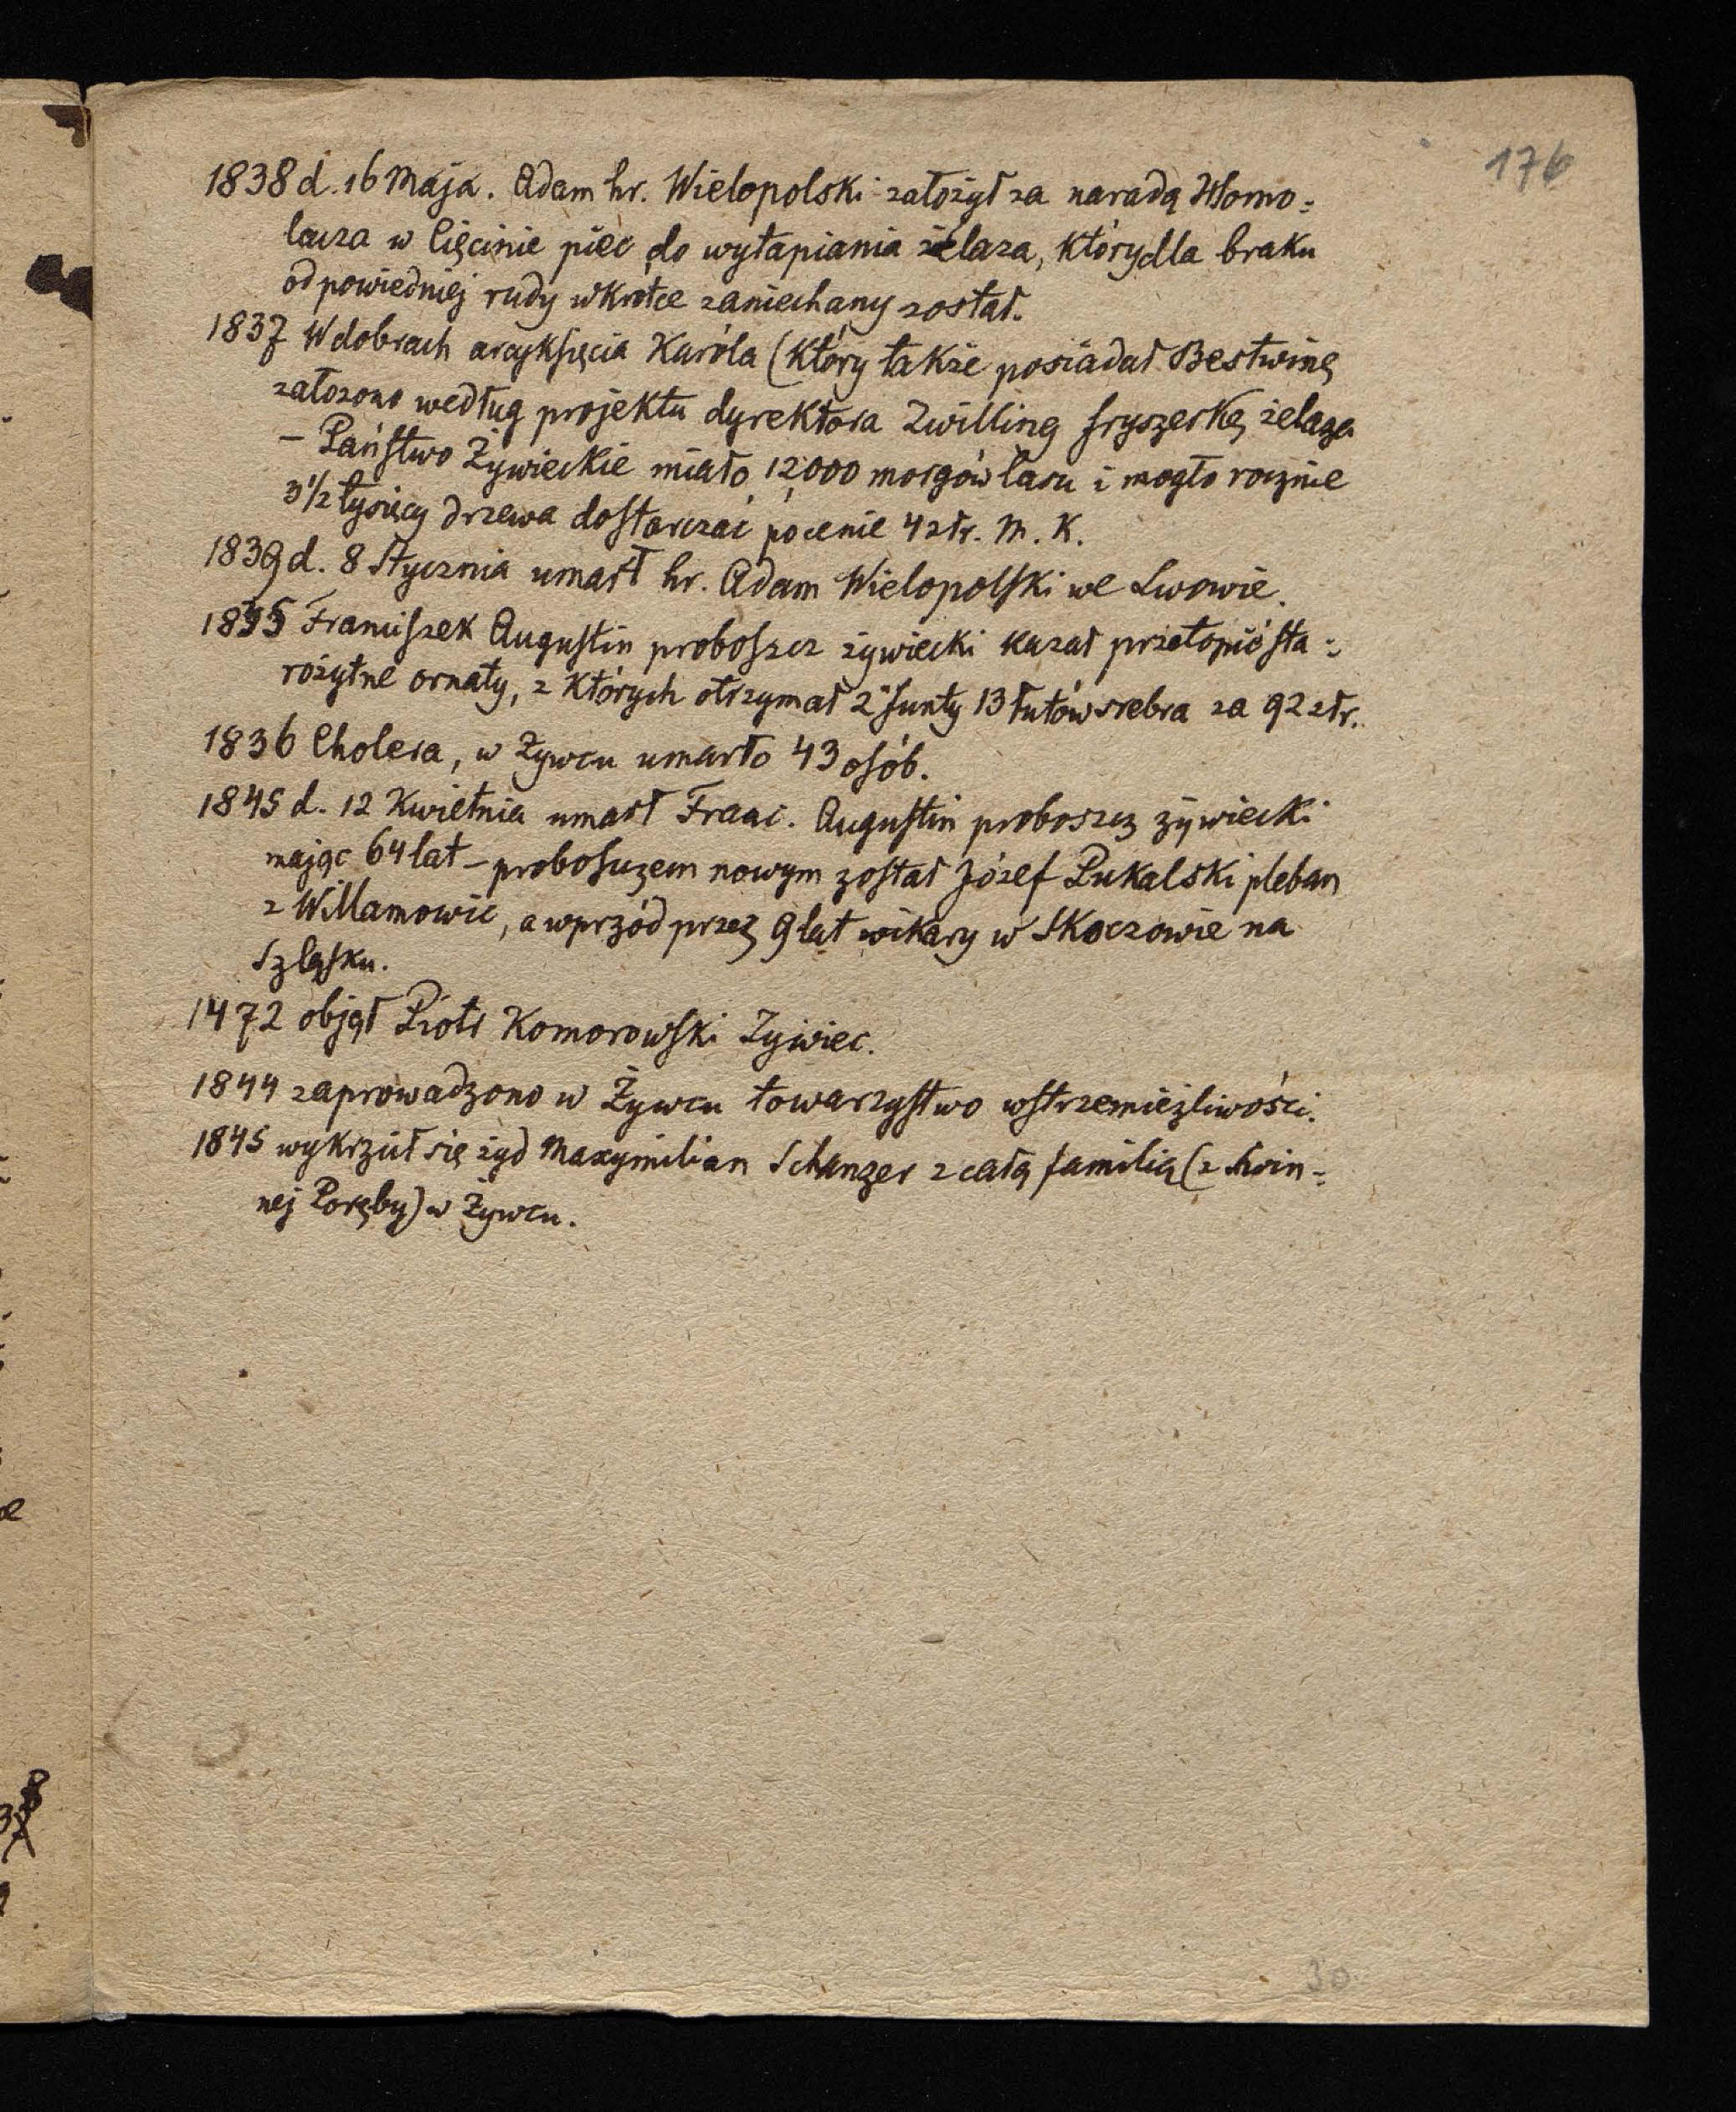 176
1838 d. 16 Maja. Adam hr. Wielopolski założył za naradą Homo=
lacza w Cięcinie piec do wytapiania żelaza, który dla braku
odpowiedniej rudy wkrótce zaniechany został.
1837 W dobrach arcyksięcia Karóla (który także posiadał Bestwinę
założono według projektu dyrektora Zwilling fryszerkę żelaza
– Państwo Żywieckie miało 12,000 morgów lasu i mogło rocznie
3 1/2 tysięcy drzewa dostarczać po cenie 4 złr. M. K.
1839 d. 8 Stycznia umarł hr. Adam Wielopolski we Lwowie.
1835 Franciszek Augustin proboszcz żywiecki kazał przetopić sta=
rożytne ornaty, z których otrzymał 2 funty 13 łutów srebra za 92 złr.
1836 Cholera, w Żywcu umarło 43 osób.
1845 d. 12 Kwietnia umarł Franc. Augustin proboszcz żywiecki
mając 64 lat – proboszczem nowym został Józef Pukalski pleban
z Willamowic, a wprzód przez 9 lat wikary w Skoczowie na
Szląsku.
1472 objął Piotr Komorowski Żywiec.
1844 zaprowadzono w Żywcu towarzystwo wstrzemięźliwości.
1845 wykrzcił się żyd Maxymilian Schanzer z całą familią (z Świn=
nej Poręby) w Żywcu.
30